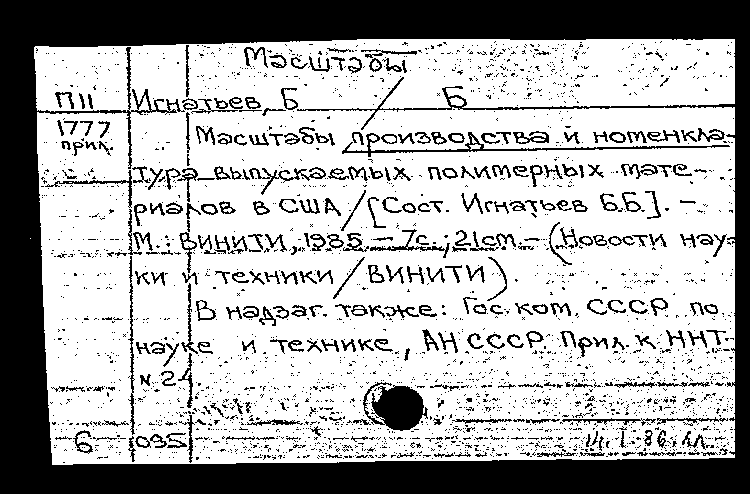 Масштабы
П11 Игнатьев, Б / Б
1777 Масштабы производства и номенкла-
прил.
тура выпускаемых полимерных мате-
риалов в США / [Сост. Игнатьев Б.Б.]. -
М.: ВИНИТИ, 1985 - 7с.; 21см - (Новости нау-
ки и техники / ВИНИТИ).
В надзаг. также: Гос. ком. СССР по
науке и технике, АН СССР Прил. к ННТ
N. 24.
6 035 14.1.86.